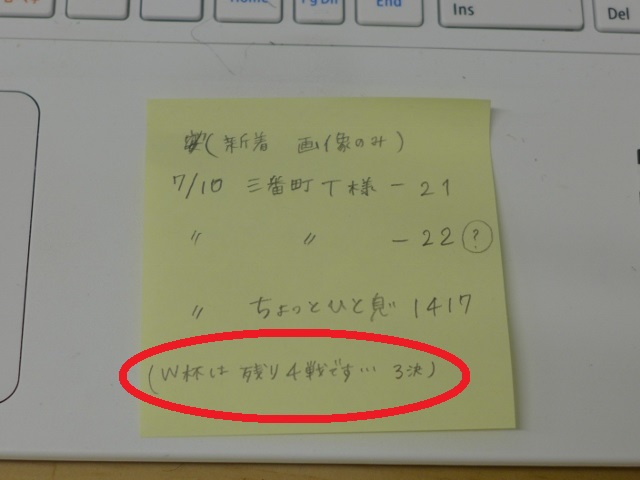 Home
PgDn
End
Ins
Del
(新着 画像のみ)
7/10 三番町T様 - 21
〃 〃 - 22 ?
〃 ちょっとひと息 1417
(W杯は残り4戦です… 3決)